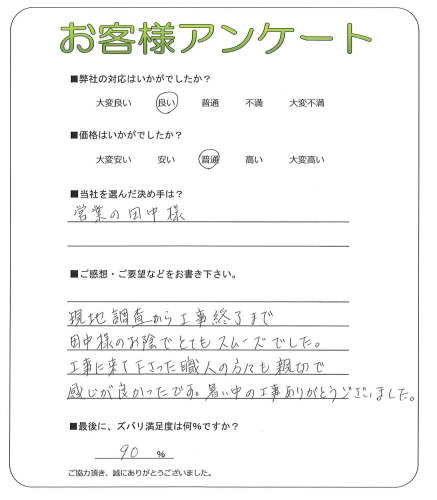 お客様アンケート
■弊社の対応はいかがでしたか？
大変良い 良い 普通 不満 大変不満
■価格はいかがでしたか？
大変安い 安い 普通 高い 大変高い
■当社を選んだ決め手は？
営業の田中様
■ご感想・ご要望などをお書き下さい。
現地調査から工事終了まで
田中様のお陰でとてもスムーズでした。
工事に来て下さった職人の方々も親切で
感じが良かったです。暑い中の工事ありがとうございました。
■最後に、ズバリ満足度は何％ですか？
90 ％
ご協力頂き、誠にありがとうございました。